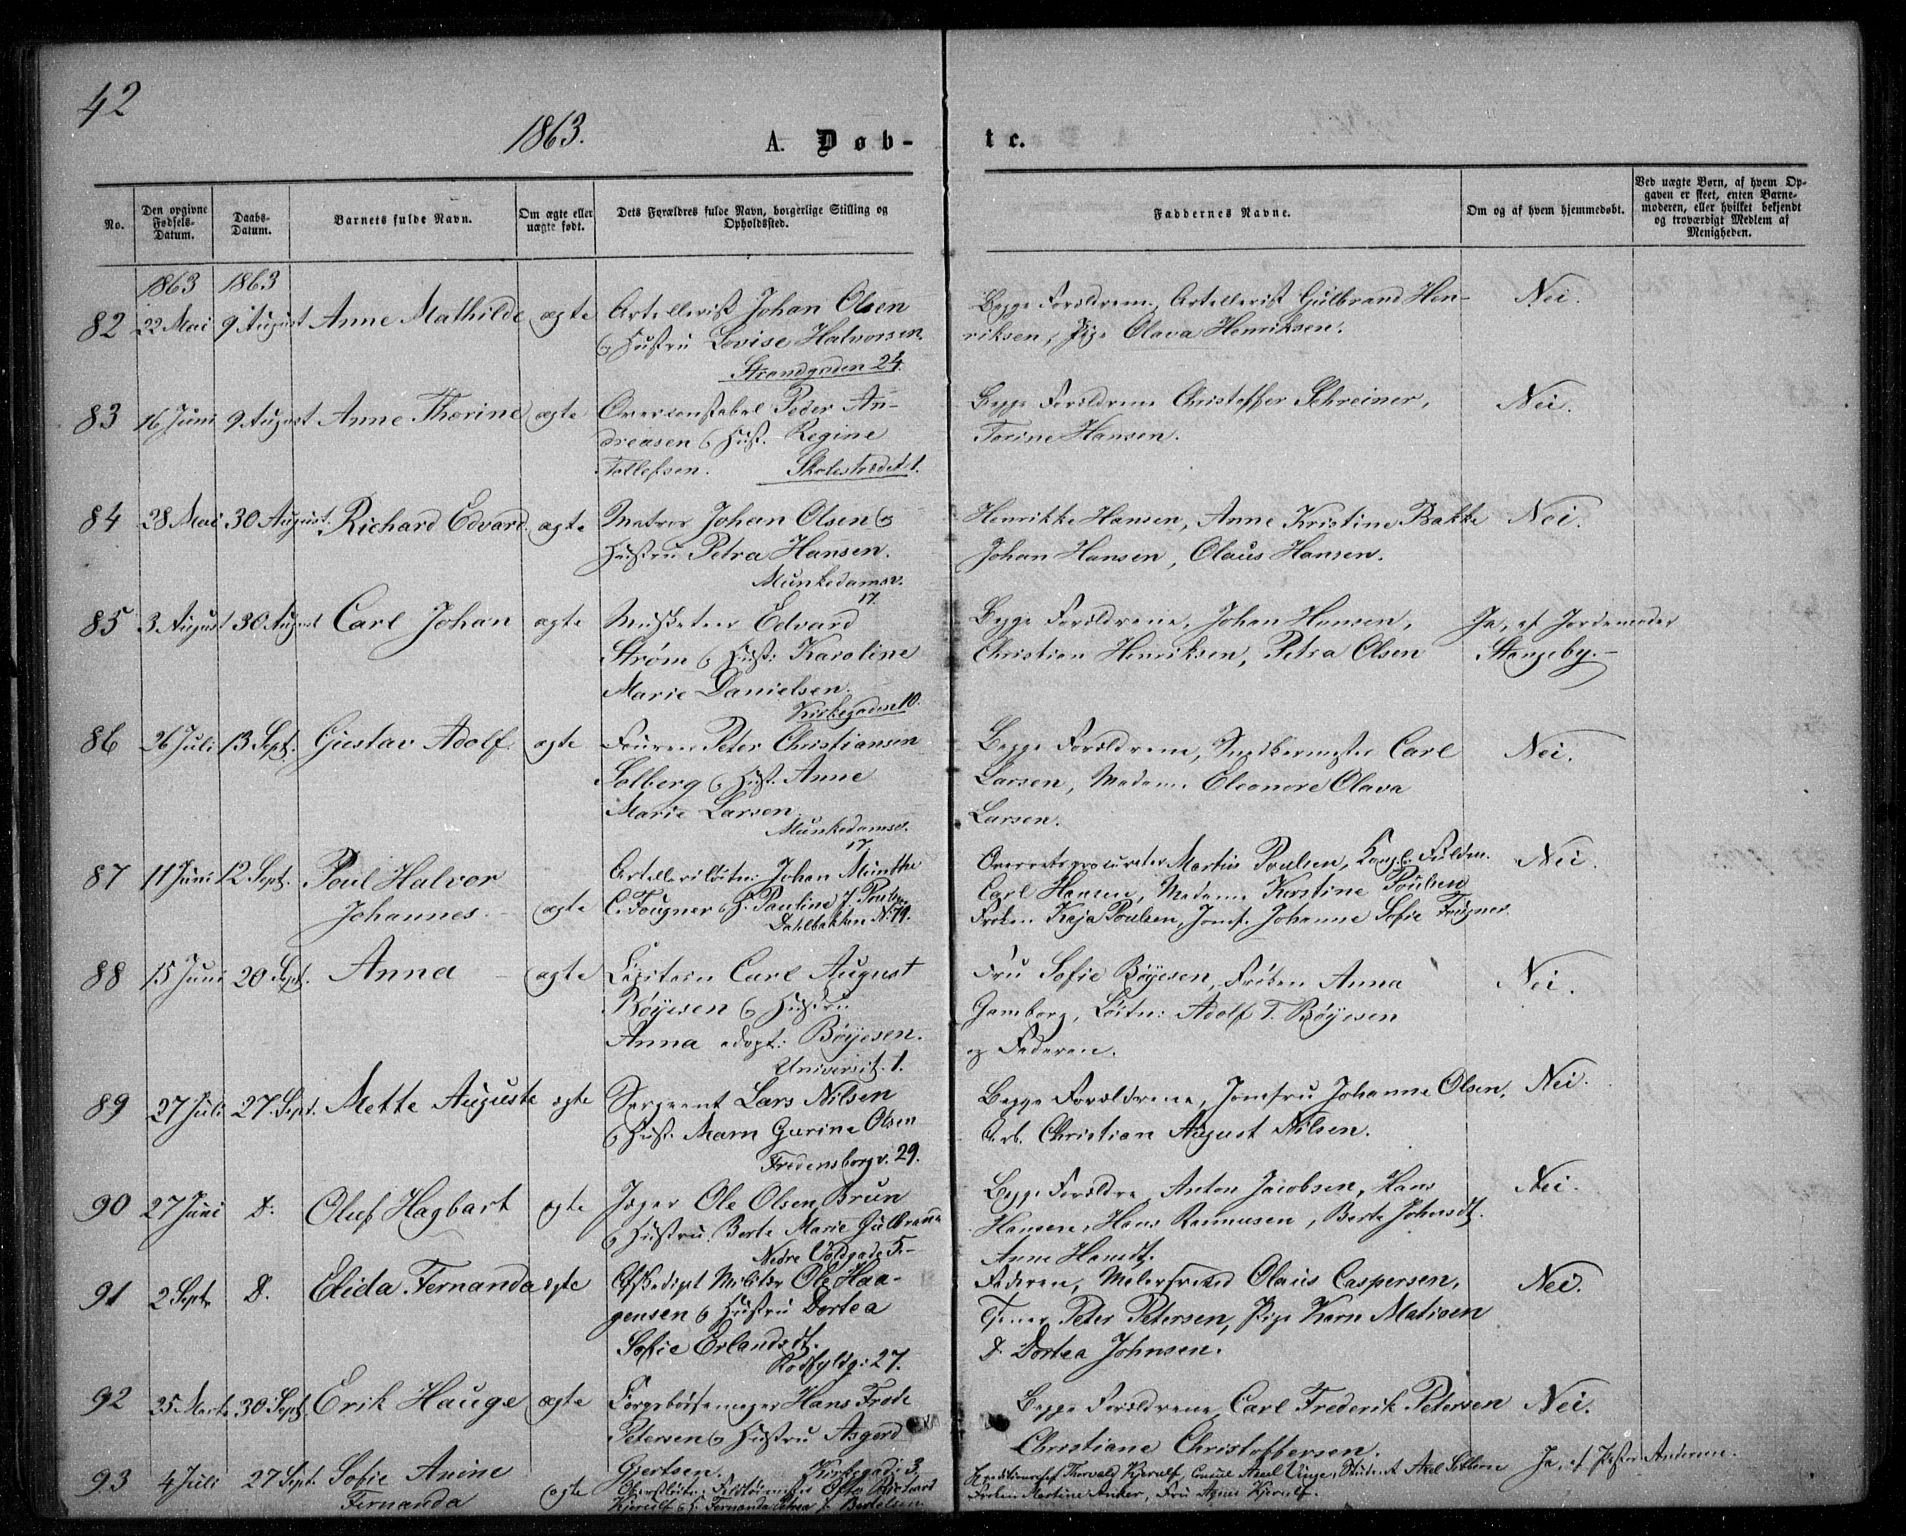 42
1863.
A. Døb-
te.
No.
Den opgivne Fødsels-Datum.
Daabs-Datum.
Barnets fulde Navn.
Om ægte eller uægte født.
Dets Forældres fulde Navn, borgerlige Stilling og Opholdssted.
Faddernes Navne.
Om og af hvem hjemmedøbt.
Ved uægte Børn, af hvem Opgaven er skeet, enten Barnemoderen, eller hvilket bekjendt og troværdigt Medlem af Menigheden.
1863 1863
82 22 Mai 9 August Anne Mathilde ægte Artellerist Johan Olsen
& Hustru Lovise Halvorsen.
Strandgaden 24.
Begge Forældrene, Artellerist Gulbrand Hen-
riksen, Pige Olava Henriksen.
Nei.
83 16 Juni 9 August Anne Thorine ægte Overconstabel Peder An-
dreasen & Hust. Regine
Tollefsen. Skolestrædet 1.
Begge Forældrene Christoffer Schreiner,
Torine Hansen.
Nei.
84 28 Mai 30 August. Richard Edvard ægte Matros Johan Olsen &
Hustru Petra Hansen.
Munkedamsv.
17.
Henrikke Hansen, Anne Kristine Bakke
Johan Hansen, Olaus Hansen.
Nei.
85 3 August 30 August Carl Johan ægte Musketeer Edvard
Strøm & Hust: Karoline
Marie Danielsen.
Kirkegaden 10.
Begge Forældrene, Johan Hansen,
Christian Henriksen, Petra Olsen
Ja, af Jordemoder
Stangeby.-
86 26 Juli 13 Sept. Gustav Adolf. ægte Fourer Peter Christiansen
Solberg & Hust. Anne
Marie Larsen.
Munkedamsv.
17.
Begge Forældrene, Snedkermester Carl
Larsen, Madam. Eleonore Olava
Larsen.
Nei.
87 11 Juni 12 Sept. Poul Halvor
Johannes. ægte
Artelleriløitn: Johan Munthe
C. Fougner & H. Pauline J. Poulsen
Dahlbakken N. 79.
Overretsprocurator Martin Poulsen, Kongl. Fuldm.
Carl Hansen, Madame Kirstine Poulsen
Frøken Kaja Poulsen, Jomf. Johanne Sofie Fougner.
Nei.
88 15 Juni 20 Sept. Anna ægte Capitain Carl August
Bøyesen & Hustru
Anna adopt: Bøyesen.
Universit. 1.
Fru Sofie Bøyesen, Frøken Anna
Gamborg, Løitn: Adolf T. Bøyesen
og Faderen.
Nei.
89 27 Juli 27. Sept. Mette Auguste ægte Sergeant Lars Nilsen
& Hust. Marn Gurine Olsen
Fredensborgv. 29.
Begge Forældrene, Jomfru Johanne Olsen,
Arb. Christian August Nilsen.
Nei.
90 27 Juni D. Oluf Hagbart ægte Jæger Ole Olsen Brun
& Hustru. Berte Marie Gulbrans
Nedre Voldgade 5.-
Begge Forældre, Anton Jacobsen, Hans
Hansen, Hans Rasmussen, Berte Johnsdt.
Anne Hansdt.
Nei.
91 2 Sept. D. Elida Fernanda ægte Afskediget Militær Ole Haa-
gensen & Hustru Dortea
Sofie Erlandsdt.
Rodfyldg: 27.
Faderen, Malersvend Olaus Caspersen,
Tjener Peter Petersen, Pige Karn Matisen
D. Dortea Johnsen.
Nei.
92 25 Marts 30 Sept. Erik Hauge ægte Corpsbøssemager Hans Frode
Petersen & Hustru Asgerd
Gjertsen. Kirkegad: 3
Begge Forældrene, Carl Frederik Petersen
Christiane Christoffersen.
Nei.
93 4 Juli 27 Sept. Sofie Anine
Fernanda ægte
Kjerulf & H. Fernanda Petrea f. Bertelsen.
Expeditionschef Thorvald Kjerulf, Consul Axel Vinge, Student Axel
Frøken Martine Anker, Fru Agnes Kjerulf.
Ja, af Pastor Andersen.